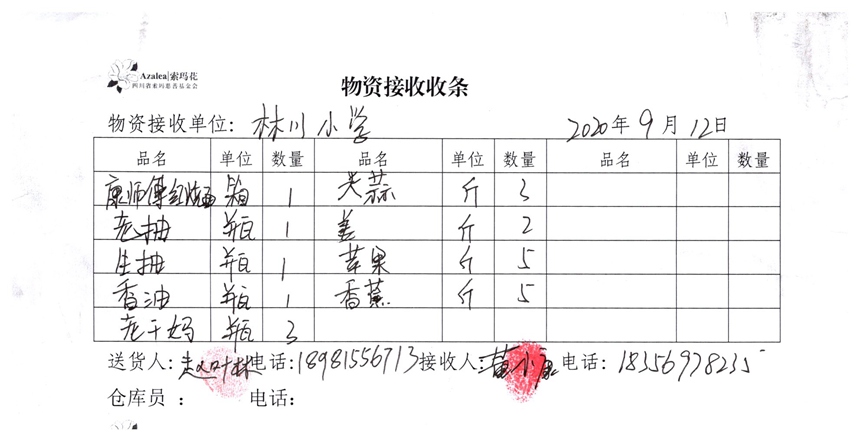 Azalea|索玛花
四川省索玛慈善基金会
物资接收收条
物资接收单位: 林川小学 2020年9月12日
品名 单位 数量 品名 单位 数量 品名 单位 数量
康师傅红烧面 箱 1 大蒜 斤 3
老抽 瓶 1 姜 斤 2
生抽 瓶 1 苹果 斤 5
香油 瓶 1 香蕉 斤 5
老干妈 瓶 3
送货人: 电话: 18981556713 接收人: 电话: 18356978235
仓库员 : 电话: